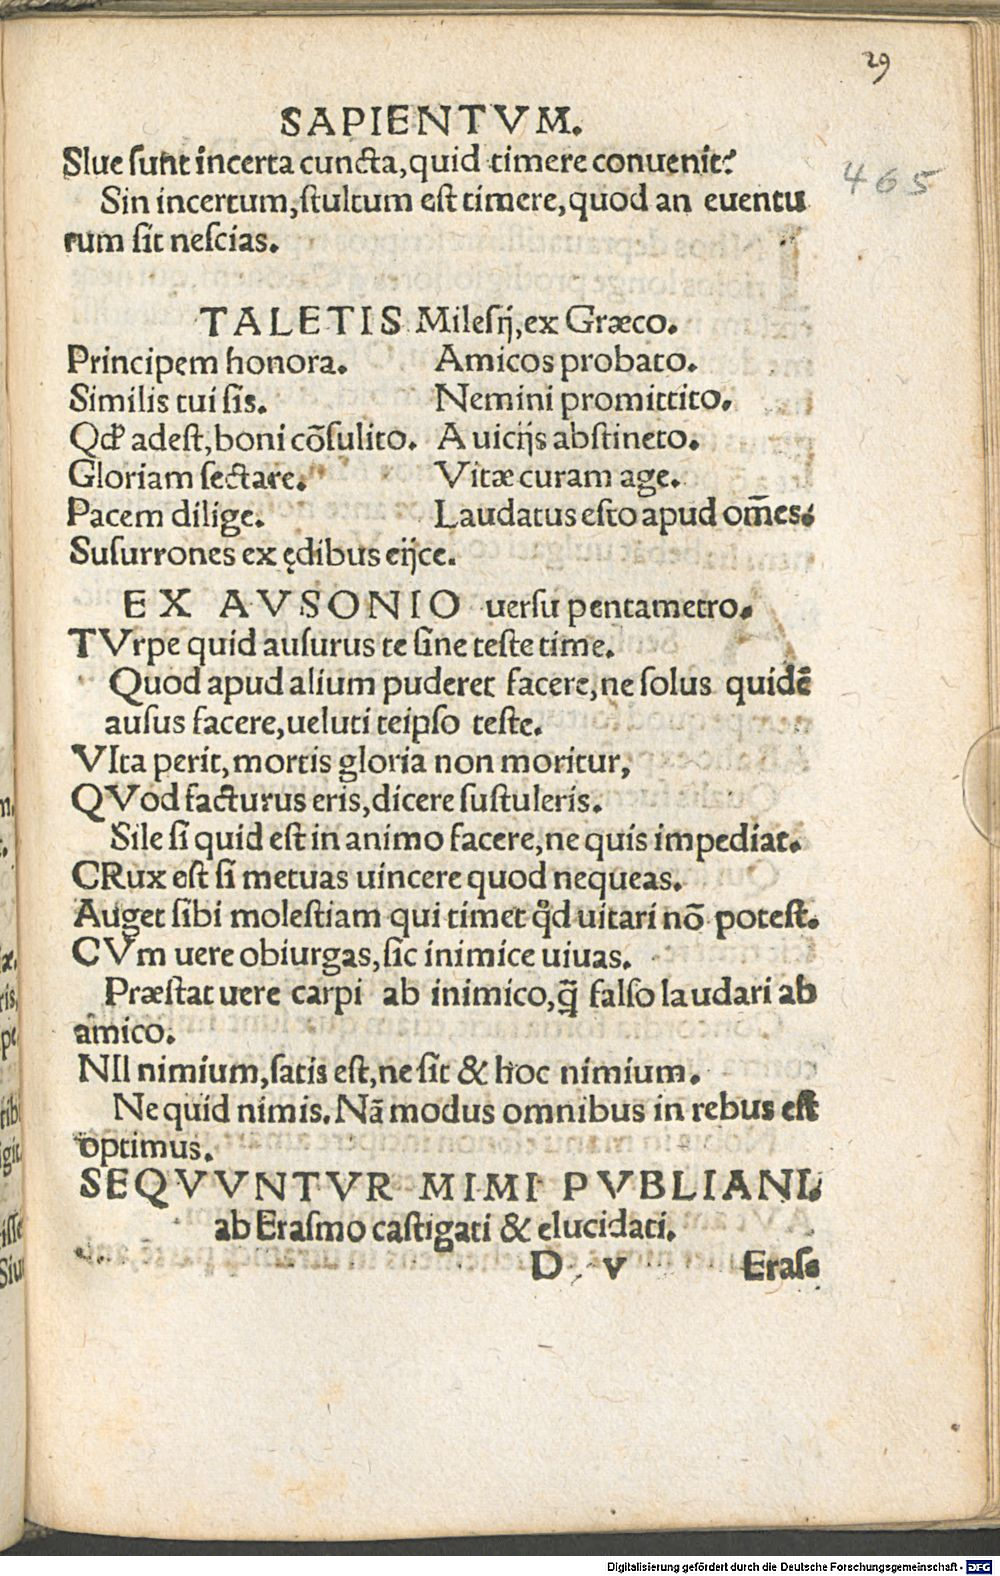 29
SAPIENTVM.
SIue sunt incerta cuncta, quid timere conuenit?
465
Sin incertum, stultum est timere, quod an euentu
rum sit nescias.
TALETIS Milesij, ex Græco.
Principem honora. Amicos probato.
Similis tui sis. Nemini promittito.
Qd' adest, boni cõsulito. A uicijs abstineto.
Gloriam sectare. Vitæ curam age.
Pacem dilige. Laudatus esto apud om̃es.
Susurrones ex ędibus eijce.
EX AVSONIO uersu pentametro.
TVrpe quid ausurus te sine teste time.
Quod apud alium puderet facere, ne solus quidẽ
ausus facere, ueluti teipso teste.
VIta perit, mortis gloria non moritur,
QVod facturus eris, dicere sustuleris.
Sile si quid est in animo facere, ne quis impediat.
CRux est si metuas uincere quod nequeas.
Auget sibi molestiam qui timet qd uitari nõ potest.
CVm uere obiurgas, sic inimice uiuas.
Præstat uere carpi ab inimico, q̃ falso laudari ab
amico.
NIl nimium, satis est, ne sit & hoc nimium.
Ne quid nimis. Nã modus omnibus in rebus est
optimus.
SEQVVNTVR MIMI PVBLIANI.
ab Erasmo castigati & elucidati.
D v Eras-
Digitalisierung gefördert durch die Deutsche Forschungsgemeinschaft - DFG